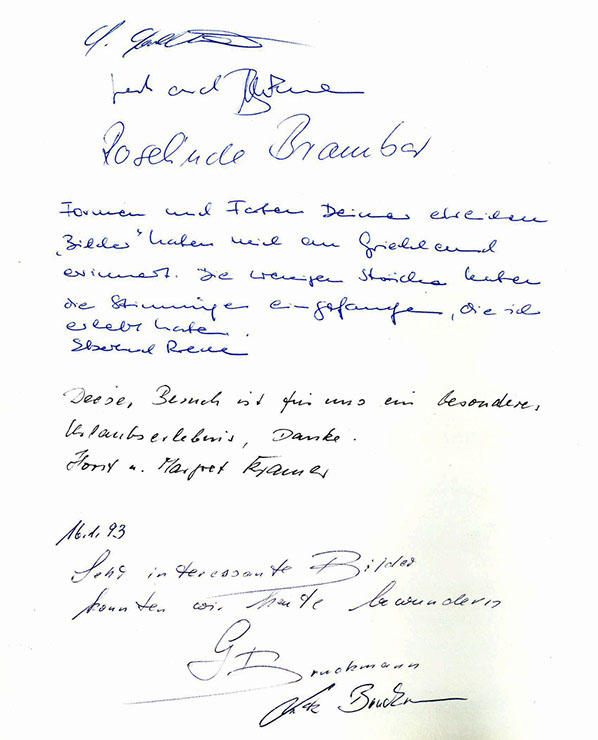 und
Roselinde Brambar
Formen und Farben Deiner
"Bilder" haben mich an Griechenland
erinnert. Die wenigen Striche haben
die Stimmungen eingefangen, die ich
erlebt habe.
Dieser Besuch ist für uns ein besonderes
Urlaubserlebnis, Danke.
Horst u. Margret Kramer
16.1.93
Sehr interessante Bilder
konnten wir heute bewundern
G Bruckmann